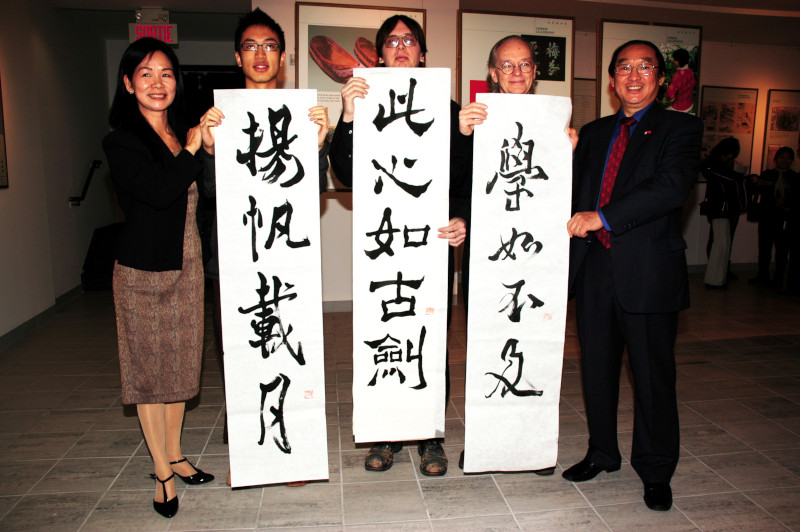 SORTIE
揚帆載月
此心如古劍
學如不及